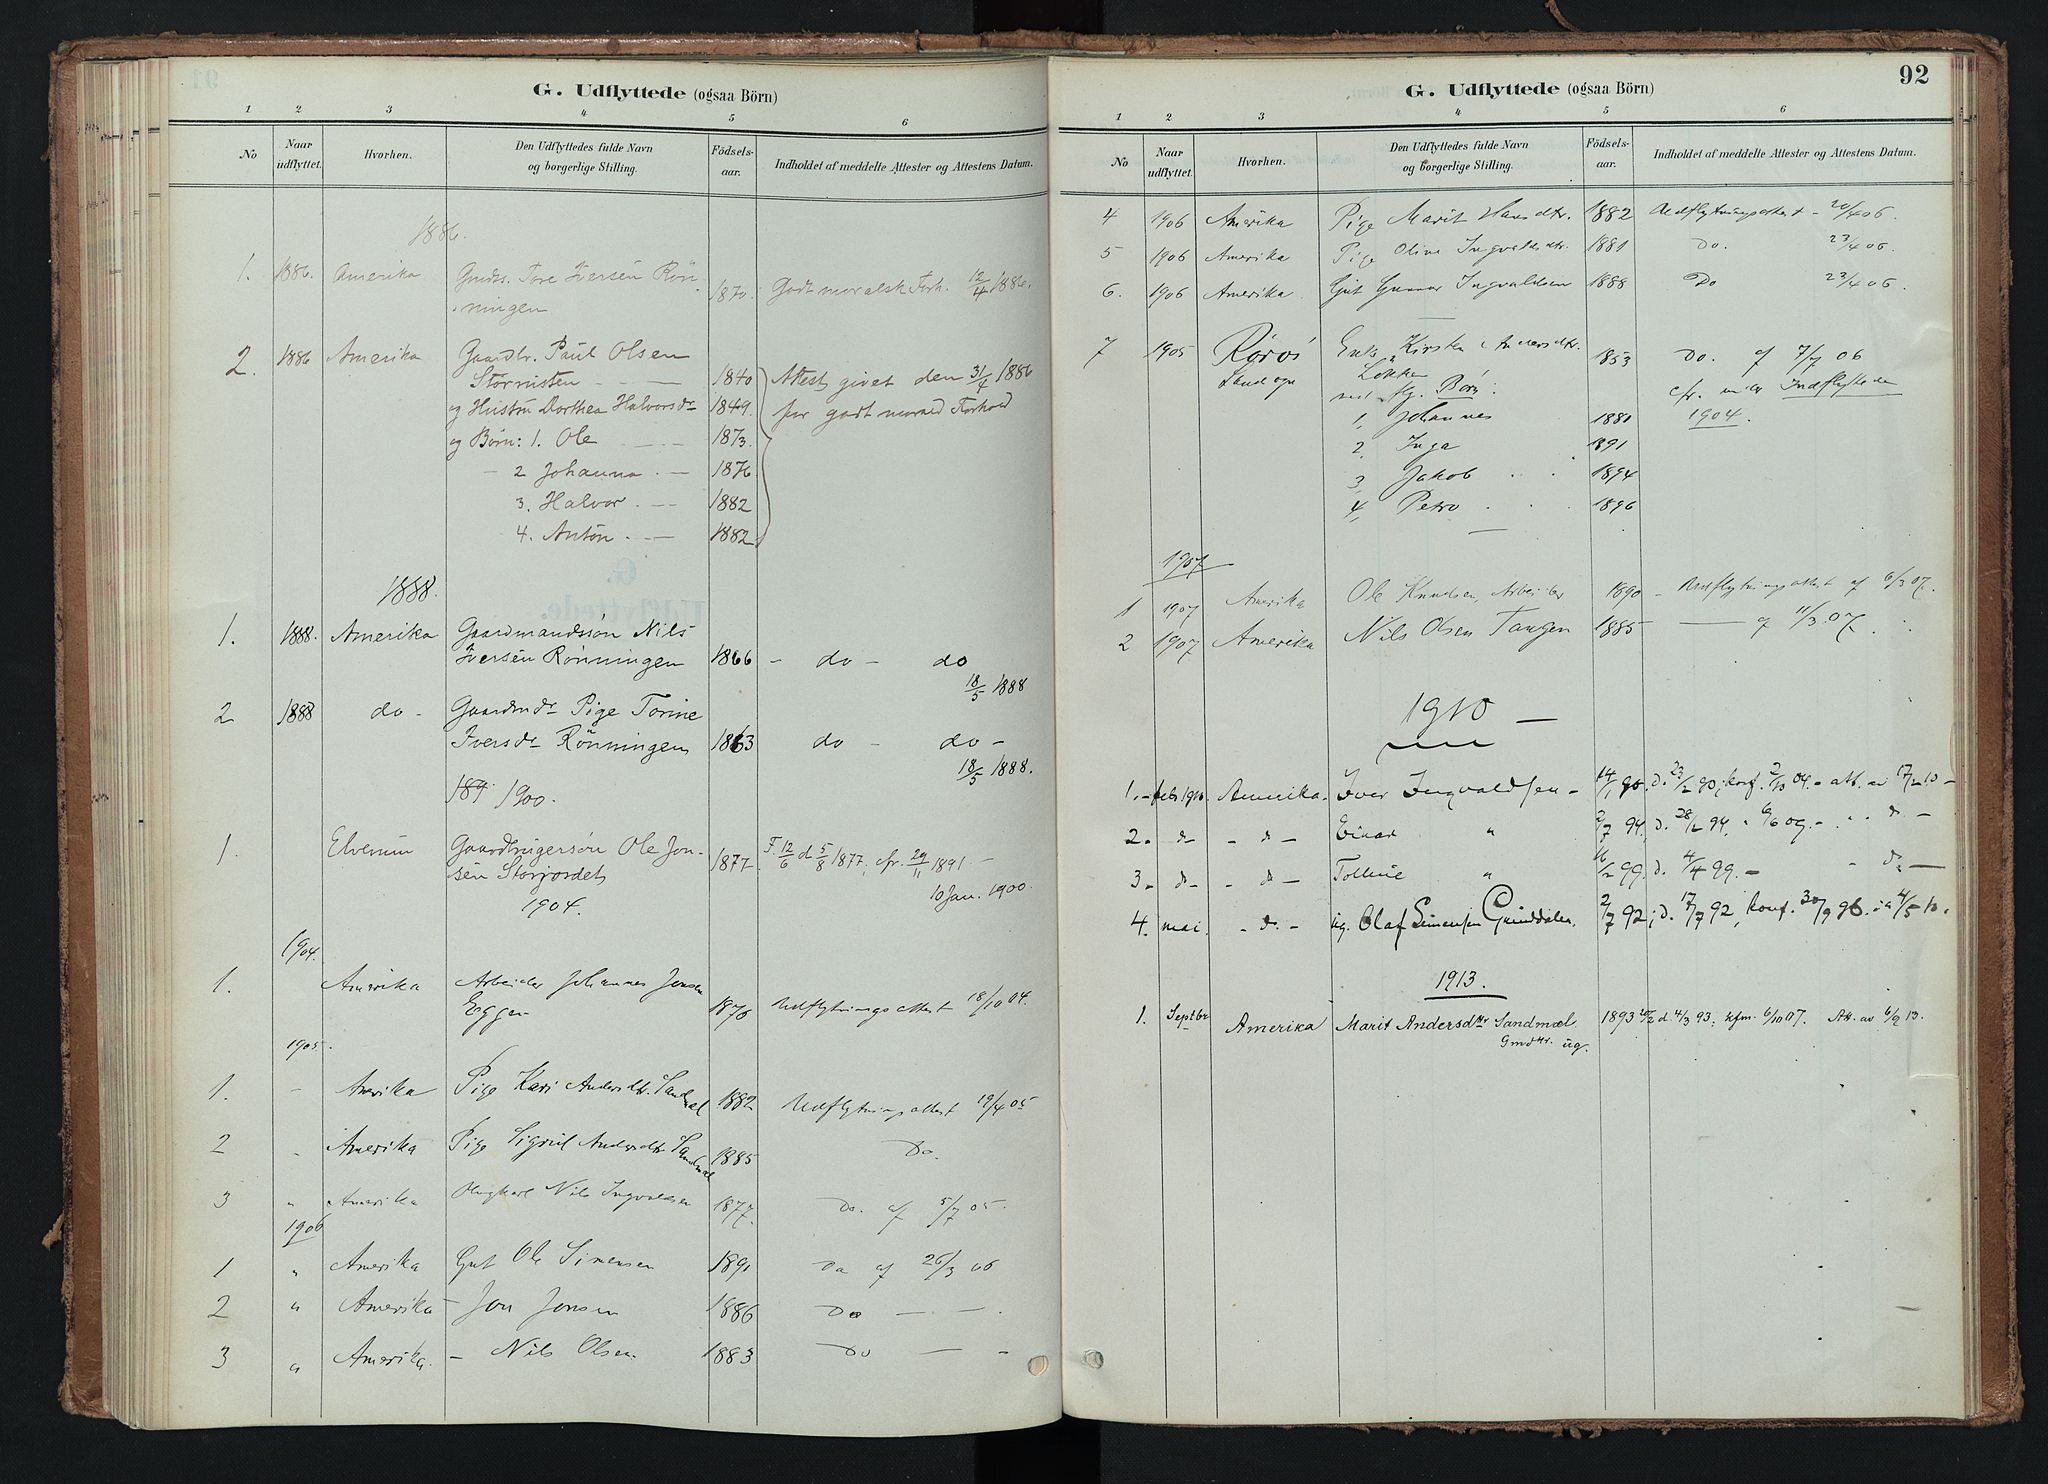 G. Udflyttede (ogsaa Börn)
1 2 3 4 5 6
No Naar udflyttet. Hvorhen. Den Udflyttedes fulde Navn og borgerlige Stilling. Födsels-aar. Indholdet af meddelte Attester og Attestens Datum.
1886.
1. 1886. Amerika Gmds. Tore Iversen Rön- 1870. Godt moralsk Forh. 12/4 1886.
ningen
2. 1886 Amerika Gaardbr. Paul Olsen
Störristen 1840 Attest givet den 31/4 1886
og Hustru Dorthea Halvorsdr 1849. for godt moralsk Forhold
og Börn: 1. Ole 1873.
2 Johanna 1876
3. Halvor 1882
4. Anton 1882
1888.
1. 1888. Amerika Gaardmandssön Nils
Iversen Rönningen 1866 - do - do
18/5 1888
2 1888 do - Gaardmds Pige Torine
Iversdr Rönningen 1863 do - do -
18/5 1888.
189 1900.
1. Elverum Gaardbrugersön Ole Jon- 1877. F. 12/6 d 5/8 1877; cfr. 29/11 1891 -
sen Storjordet 10 Jan. 1900.
1904.
1904.
1. Amerika Arbeider Johannes Jonsen
Eggen 1876 Udflytningsattest 18/10 04.
1905.
1. - Amerika Pige Kari Andersdtr. Sandmæl 1882 Udflytningsattest 19/4 05
2 - Amerika Pige Sigrid Andersdtr Sandmæl 1885 Do.
3 " Amerika Ungkarl Nils Ingvaldsen 1877. Do. af 5/7 05.
1906
1 " Amerika Gut Ole Simensen 1891 Do af 26/3 06
2 " Amerika - Jon Jonsen 1886 Do - -.
3 " Amerika. - Nils Olsen. 1883 Do - -
92
G. Udflyttede (ogsaa Börn)
1 2 3 4 5 6
No Naar udflyttet. Hvorhen. Den Udflyttedes fulde Navn og borgerlige Stilling. Födsels-aar. Indholdet af meddelte Attester og Attestens Datum.
4 1906 Amerika Pige Marit Hansdtr. 1882 Udflytningsattest - 20/4 06.
5 1906 Amerika Pige Olina Ingvaldsdtr. 1881 Do. 23/4 06.
6. 1906 Amerika. Gut Gunnar Ingvaldsen 1888 Do 23/4 06.
7 1905 Röros Enke Kirsten Andersdtr. 1853 Do. af 7/7 06
Landsogn Løkken cfr. under Indflyttede
med flg. Börn: 1904.
1, Johannes 1880
2. Inga 1891
3, Jakob 1894
4, Petra 1896
1907
1 1907 Amerika Ole Knudsen, Arbeider 1890 - Udflytningsattest af 6/3 07.
2 1907 Amerika Nils Olsen Tangen 1885 - af 11/3 07.
1910 -
1. - febr 1910. Amerika - Iver Ingvaldsen - 14/1 90. d. 23/2 90; konf. 2/10 04. - att. av 17/2 10 -
2. d - d - Einar " 2/7 94. d. 28/ 94, 6/6 09. - d. -
3 - d - - d - " /2 99. d. 4/4 99. - " d. -
4. mai. - d. - ug. Olaf Simensen 2/7 92; d. 17/7 92, konf. 30/9 96. 4/5 10.
1913.
1. Septbr Amerika Marit Andersdtr Sandmæl 1893 /2 d 4/3 93; kfm. 6/10 07. Att. av 6/9 13.
Gmdtr. ug.